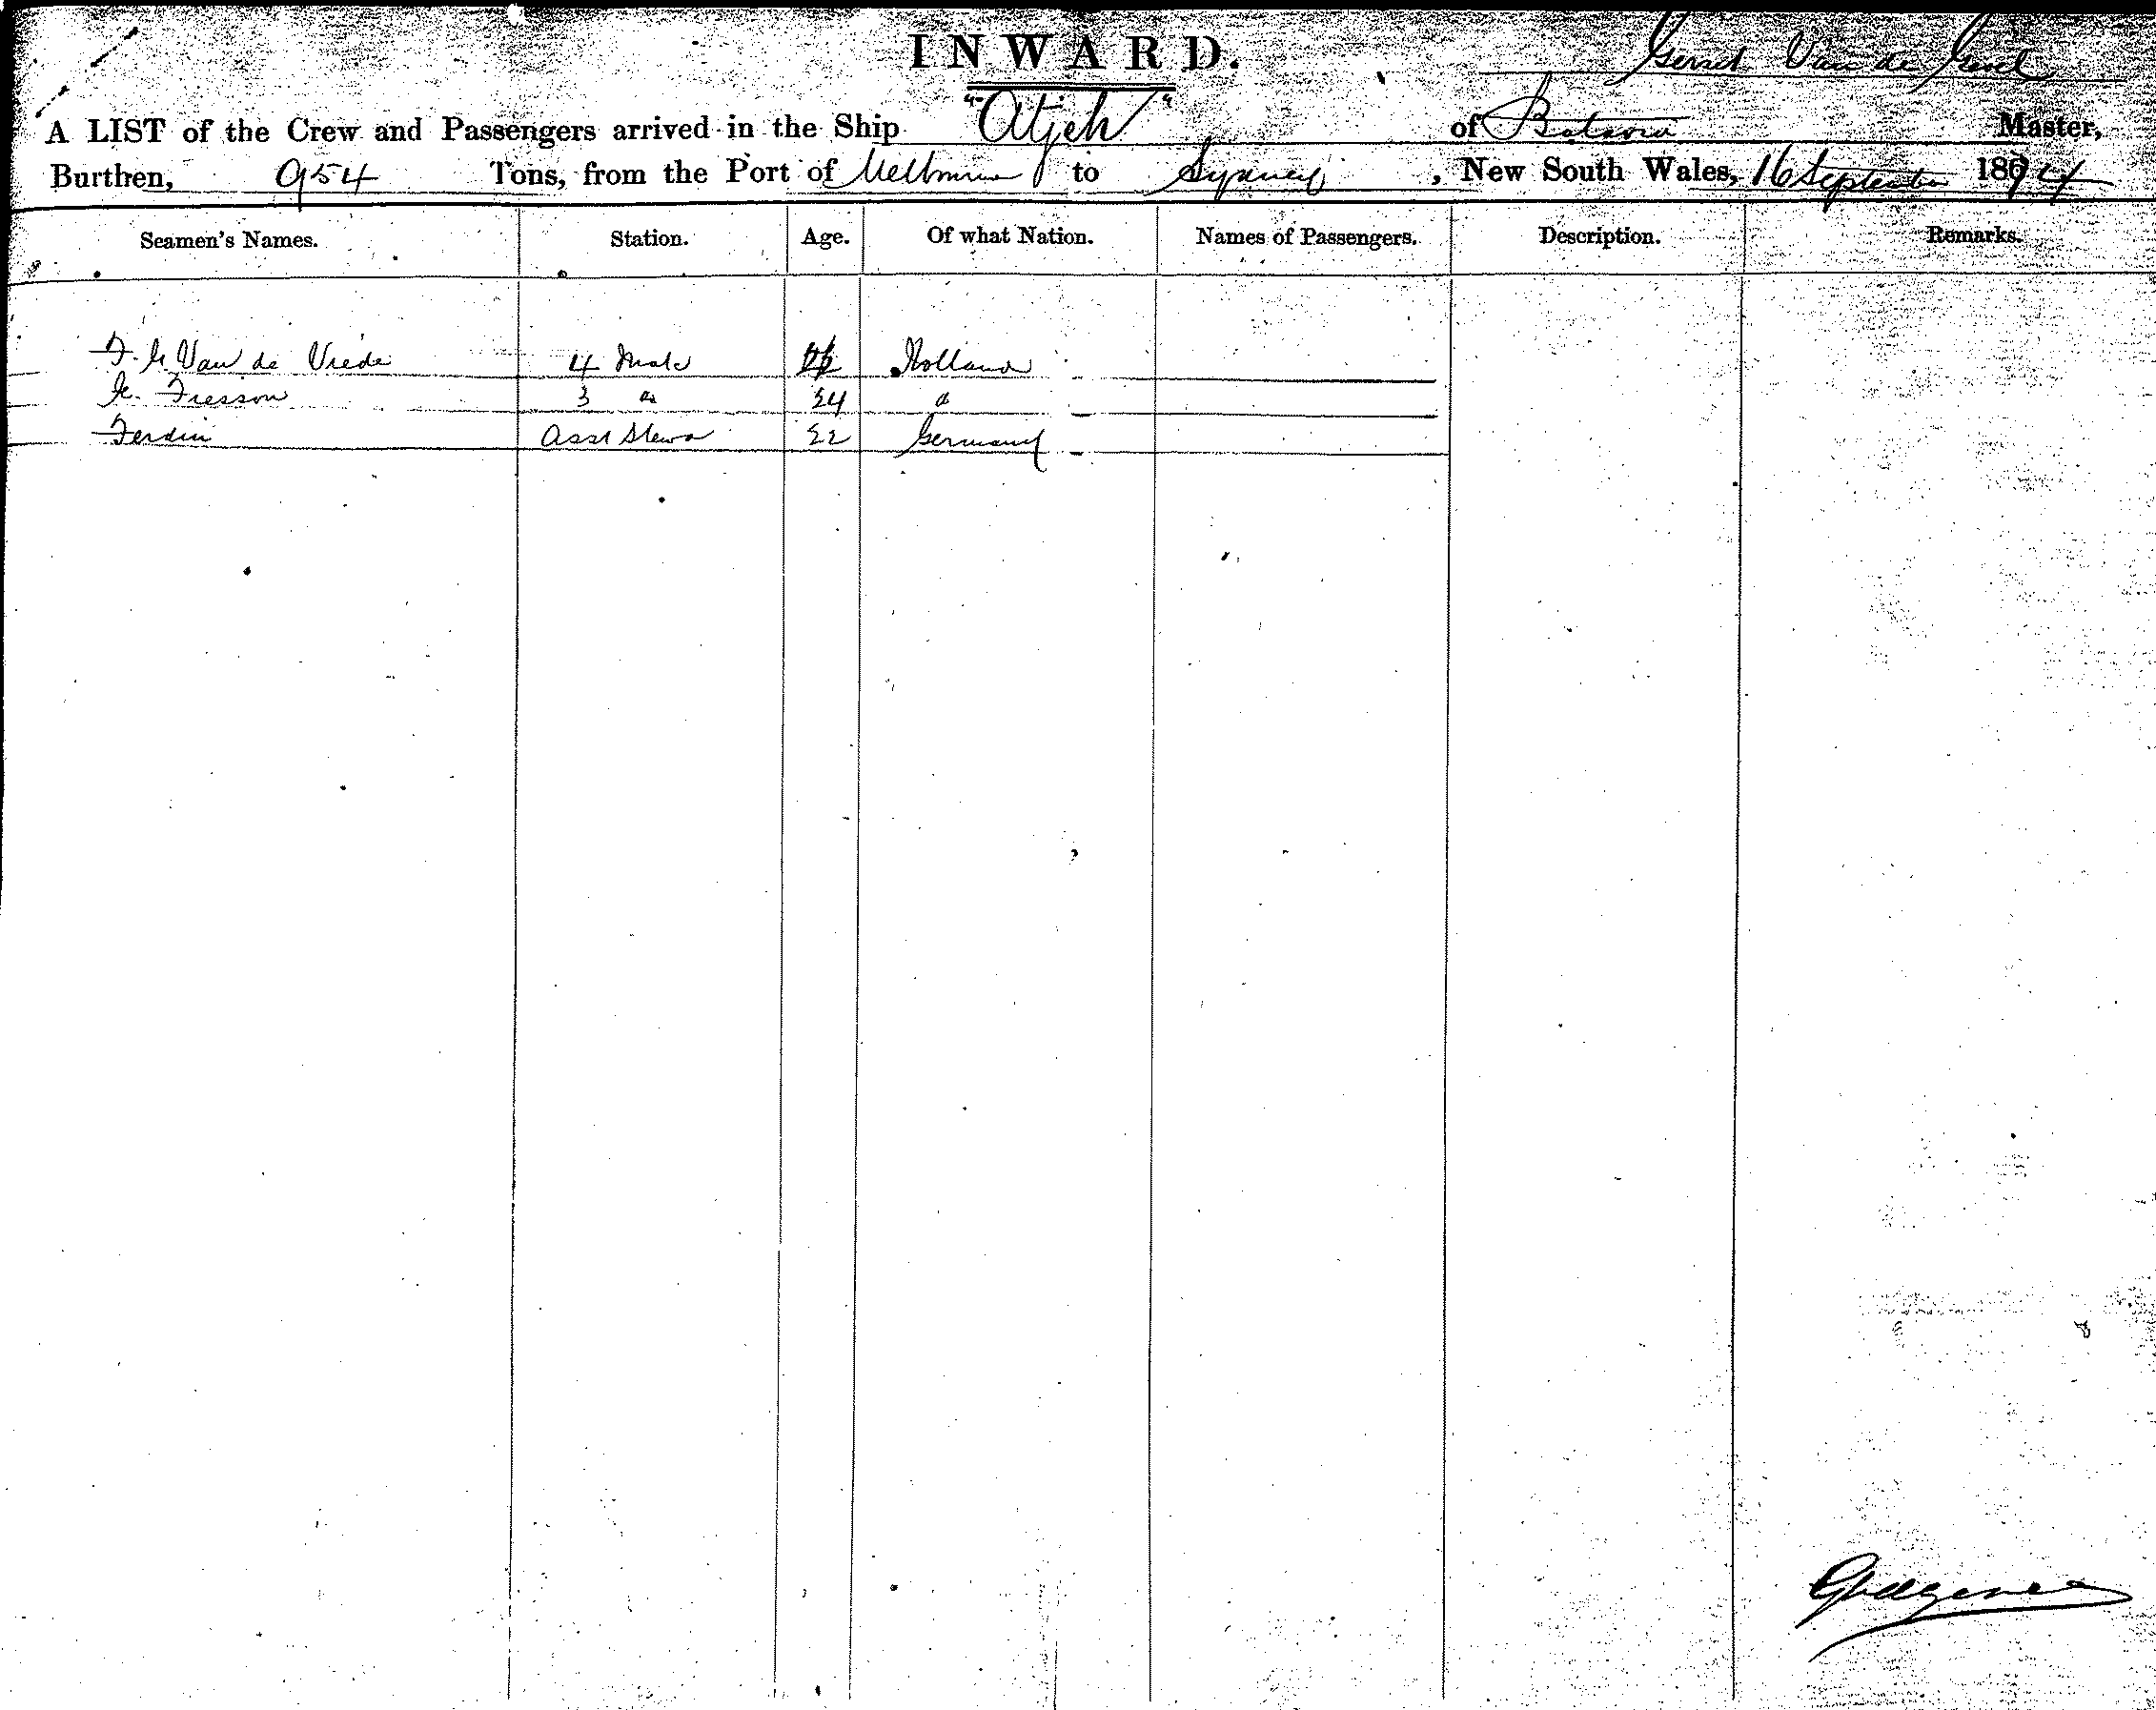 INWARD.
Gerret Van de
A LIST of the Crew and Passengers arrived in the Ship "Atjeh" of Batavia Master,
Burthen, 954 Tons, from the Port of Melbourne to Sydney, New South Wales, 16 September 1874
Seamen's Names. Station. Age. Of what Nation. Names of Passengers. Description. Remarks.
Van de Vrede 4 Mate Holland
Fresson 3 " 24 "
Ferdin Asst Stewd 22 Germany